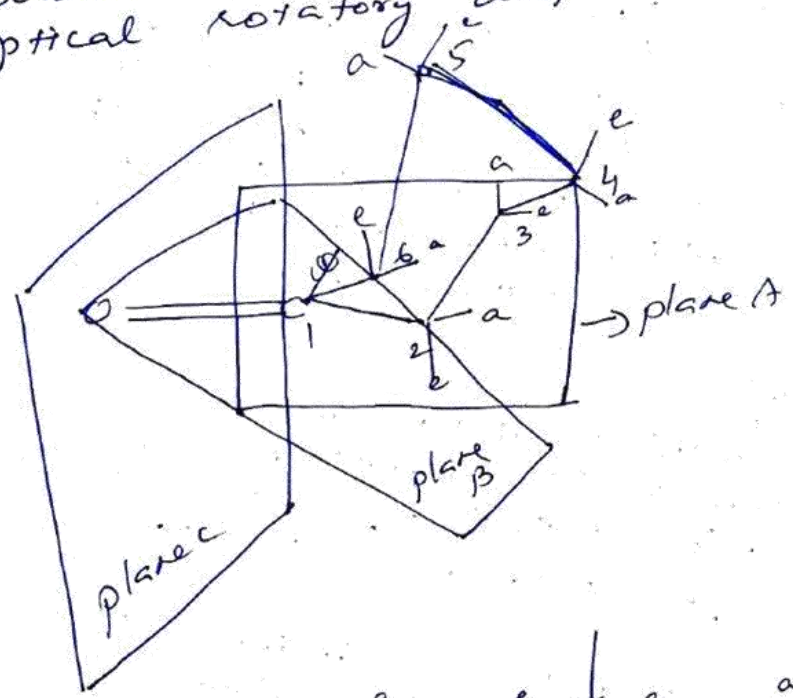 optical rotatory
a 5
e
a 4
e a
3
e
6 a
φ
O C 1
a
2
e
→ plane A
plane B
plane C